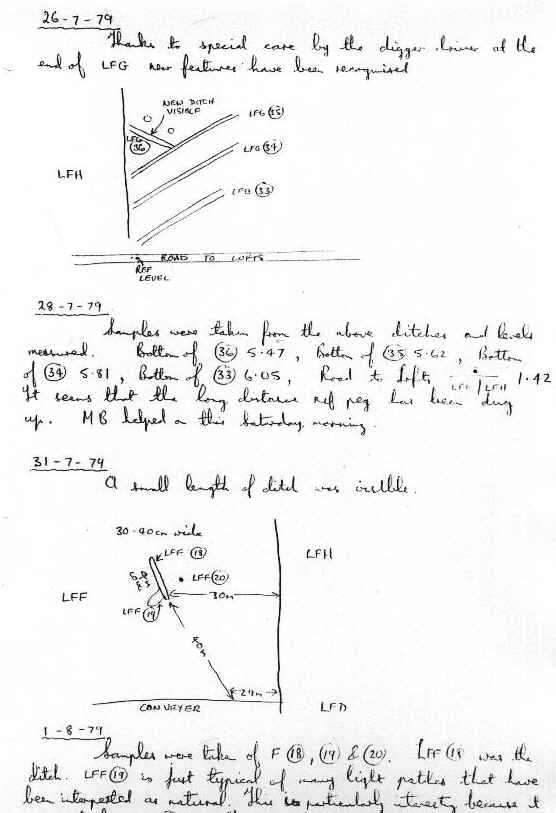 26-7-79
Thanks to special care by the digger driver at the
end of LFG new features have been recognised
NEW DITCH
VISIBLE
LFG (35)
LFG
(36)
LFG (34)
LFH
LFG (33)
ROAD TO LOFTS
REF
LEVEL
28-7-79
Samples were taken from the above ditches and levels
measured. Bottom of (36) 5.47, Bottom of (35) 5.62, Bottom
of (34) 5.81, Bottom of (33) 6.05, Road to Lofts LFG | LFH 1.42
It seems that the long distance ref peg has been dug
up. MB helped on this Saturday morning.
31-7-79
A small length of ditch was visible.
30-40cm wide
LFF (18)
LFH
LFF (20)
LFF
30m
LFF (19)
40m
24m
CONVEYER
LFD
1-8-79
Samples were taken of F (18), (19) & (20). LFF (18) was the
ditch. LFF (19) is just typical of many light patches that have
been interpreted as natural. This is particularly interesting because it